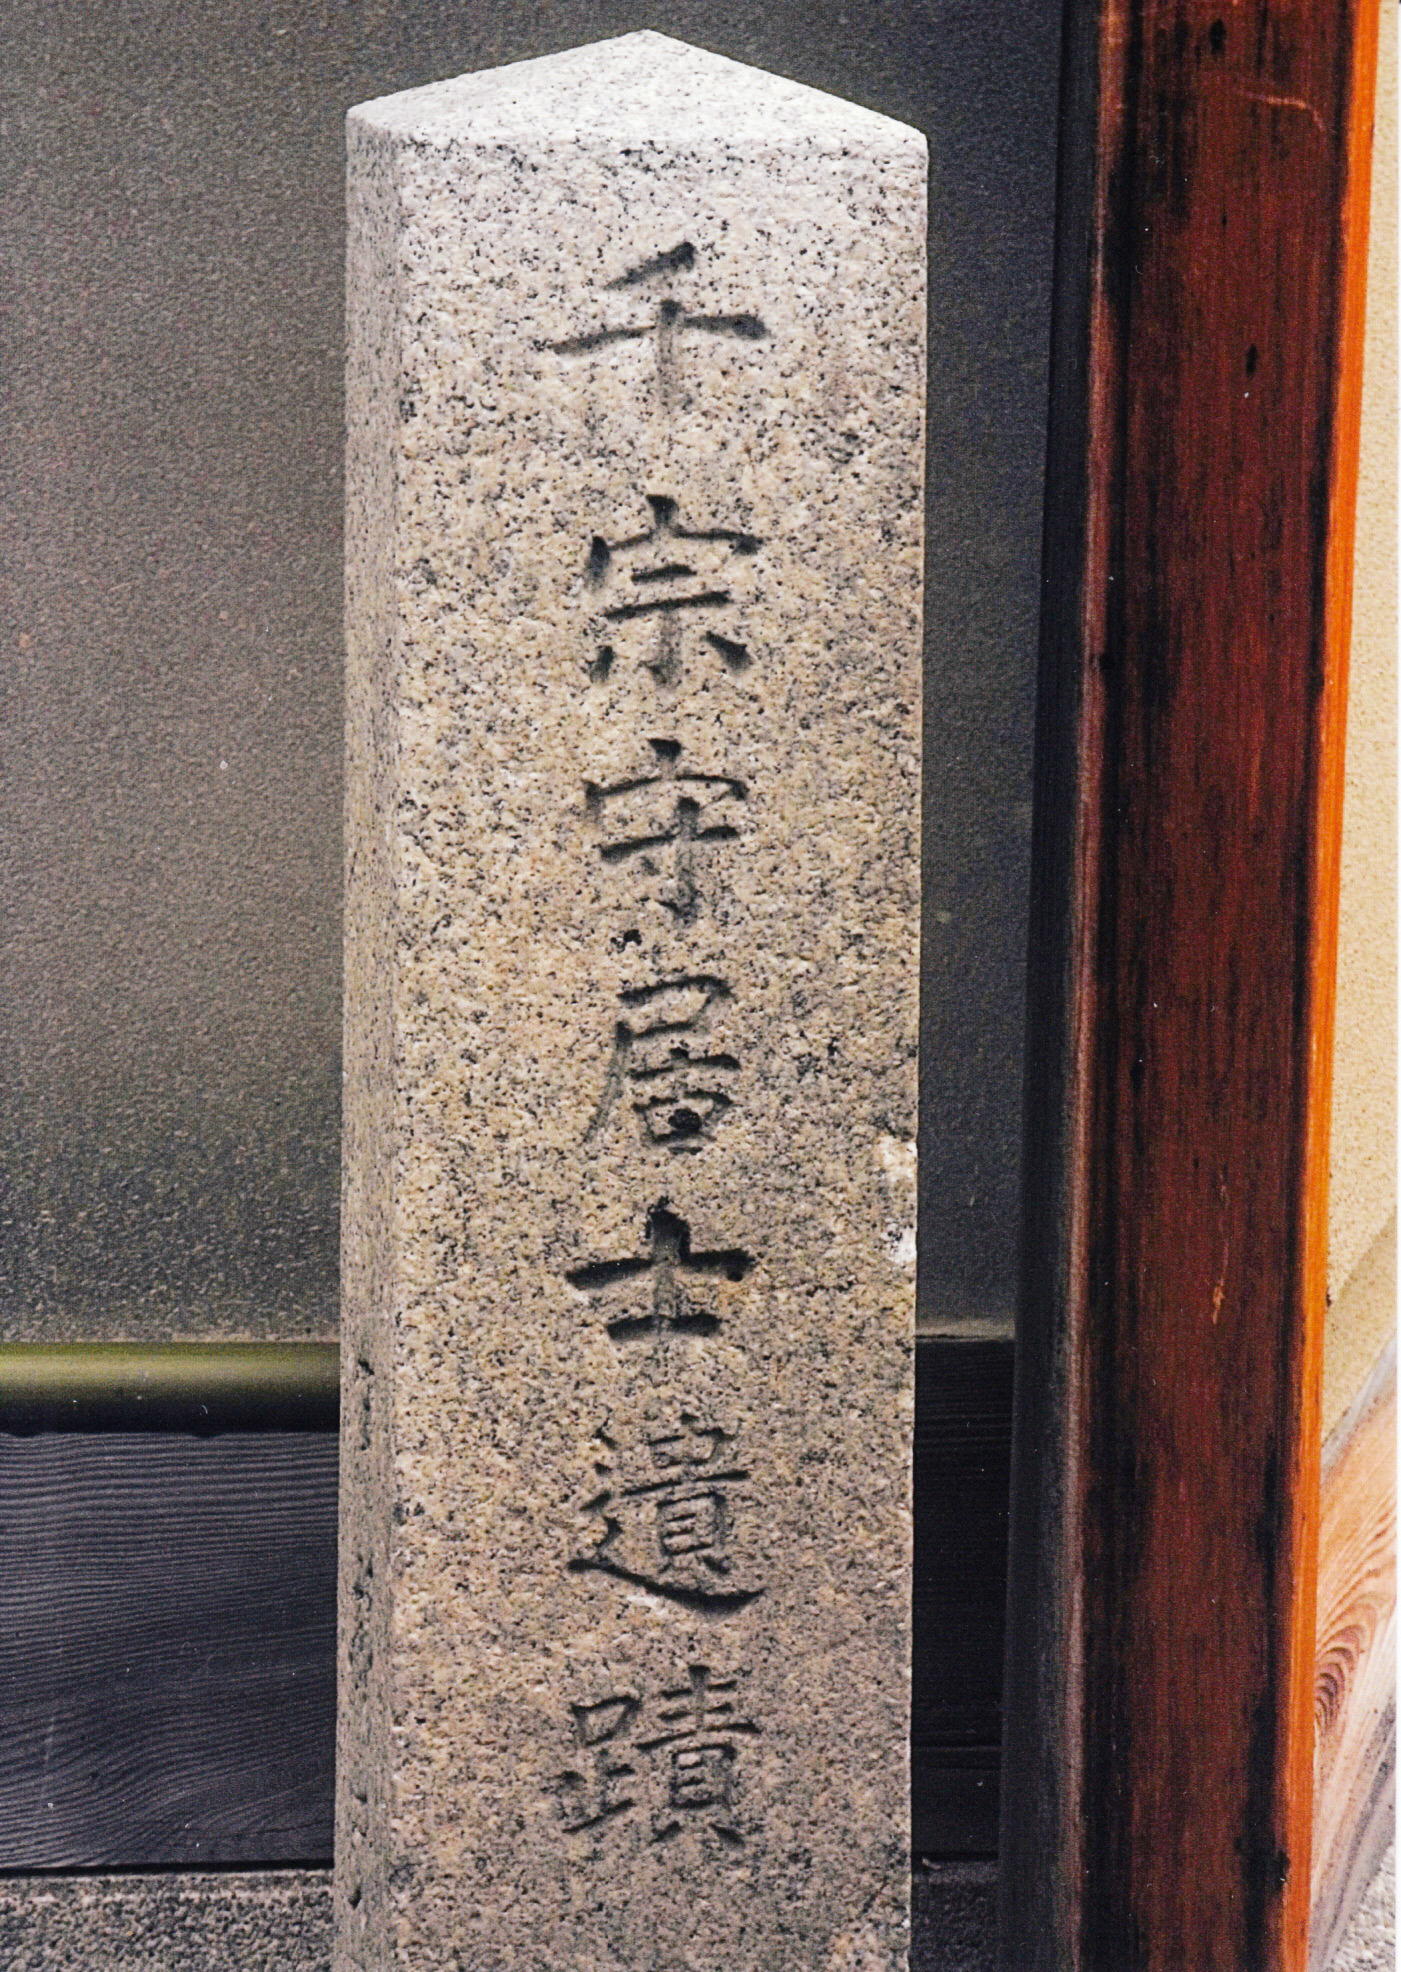 千宗守居士遺蹟